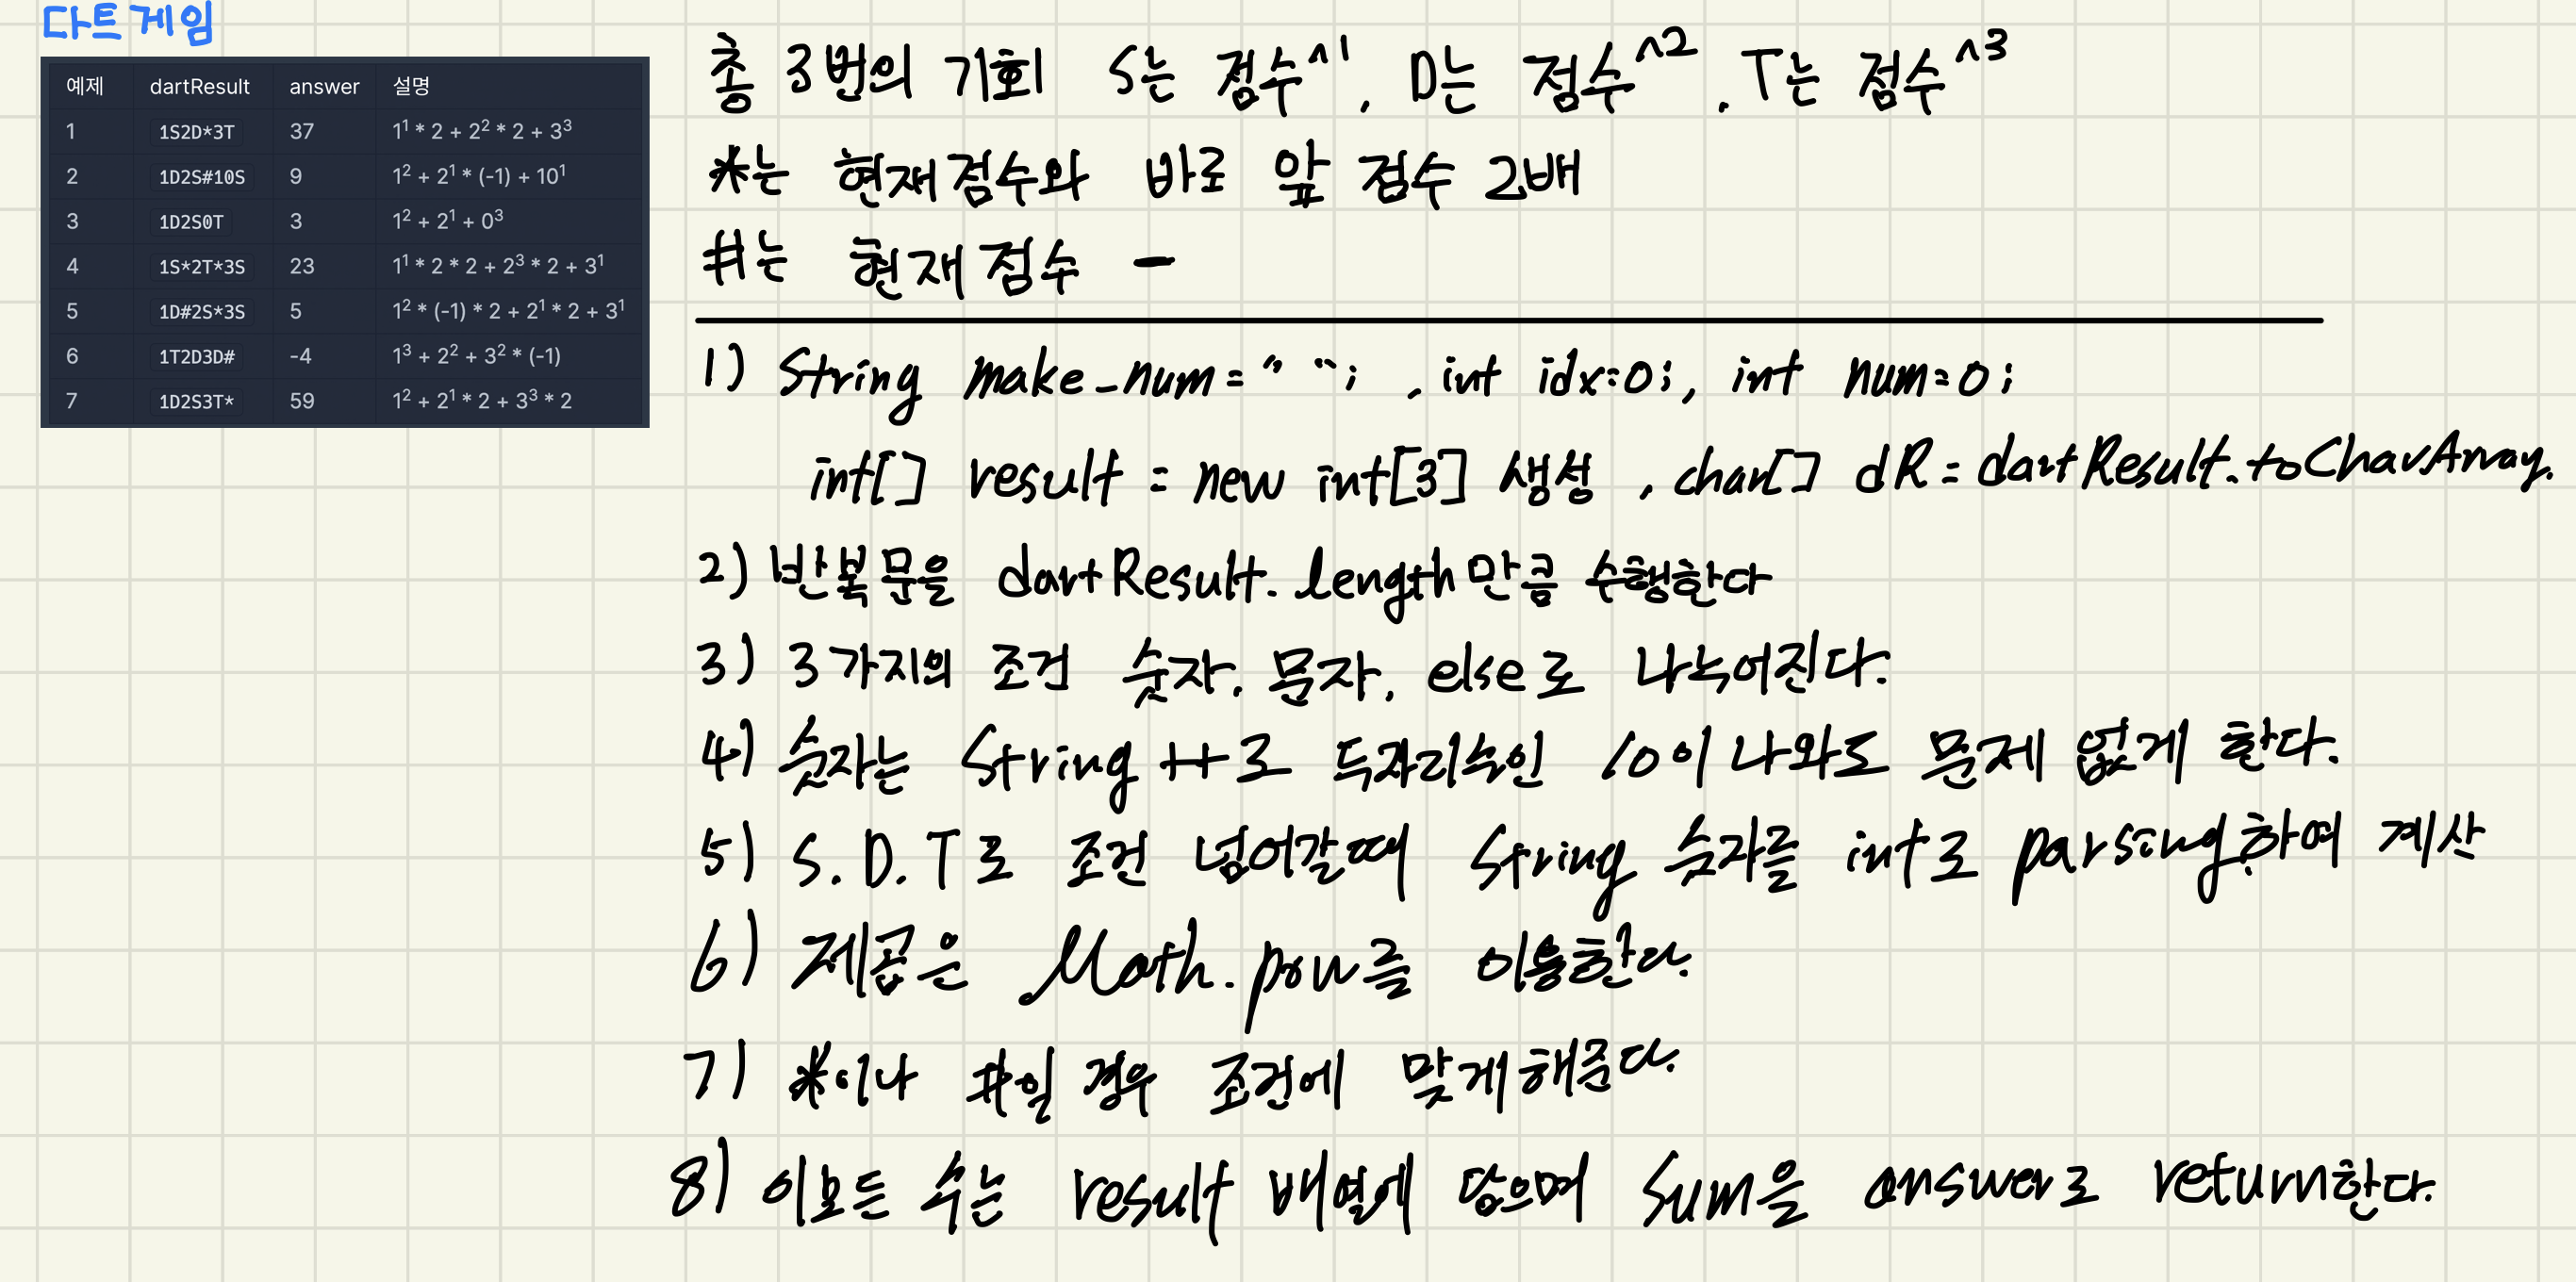 다트게임
예제 dartResult answer 설명
1 1S2D*3T 37 1¹ * 2 + 2² * 2 + 3³
2 1D2S#10S 9 1² + 2¹ * (-1) + 10¹
3 1D2S0T 3 1² + 2¹ + 0³
4 1S*2T*3S 23 1¹ * 2 * 2 + 2³ * 2 + 3¹
5 1D#2S*3S 5 1² * (-1) * 2 + 2¹ * 2 + 3¹
6 1T2D3D# -4 1³ + 2² + 3² * (-1)
7 1D2S3T* 59 1² + 2¹ * 2 + 3³ * 2
총 3번의 기회 S는 점수^1, D는 점수^2, T는 점수^3
*는 현재점수와 바로 앞 점수 2배
#는 현재점수 -
1) String make_num=" "; , int idx=0;, int num=0;
int[] result = new int[3] 생성, char[] dR = dartResult.toCharArray.
2) 반복문을 dartResult.length만큼 수행한다
3) 3가지의 조건 숫자, 문자, else로 나누어진다.
4) 숫자는 String ++로 두자리수인 10이 나와도 문제 없게 한다.
5) S.D.T로 조건 넘어갈때 String 숫자를 int로 parsing하여 계산
6) 제곱은 Math.pow를 이용한다.
7) *이나 #일 경우 조건에 맞게해준다.
8) 이모든 수는 result 배열에 담으며 Sum을 answer로 return한다.